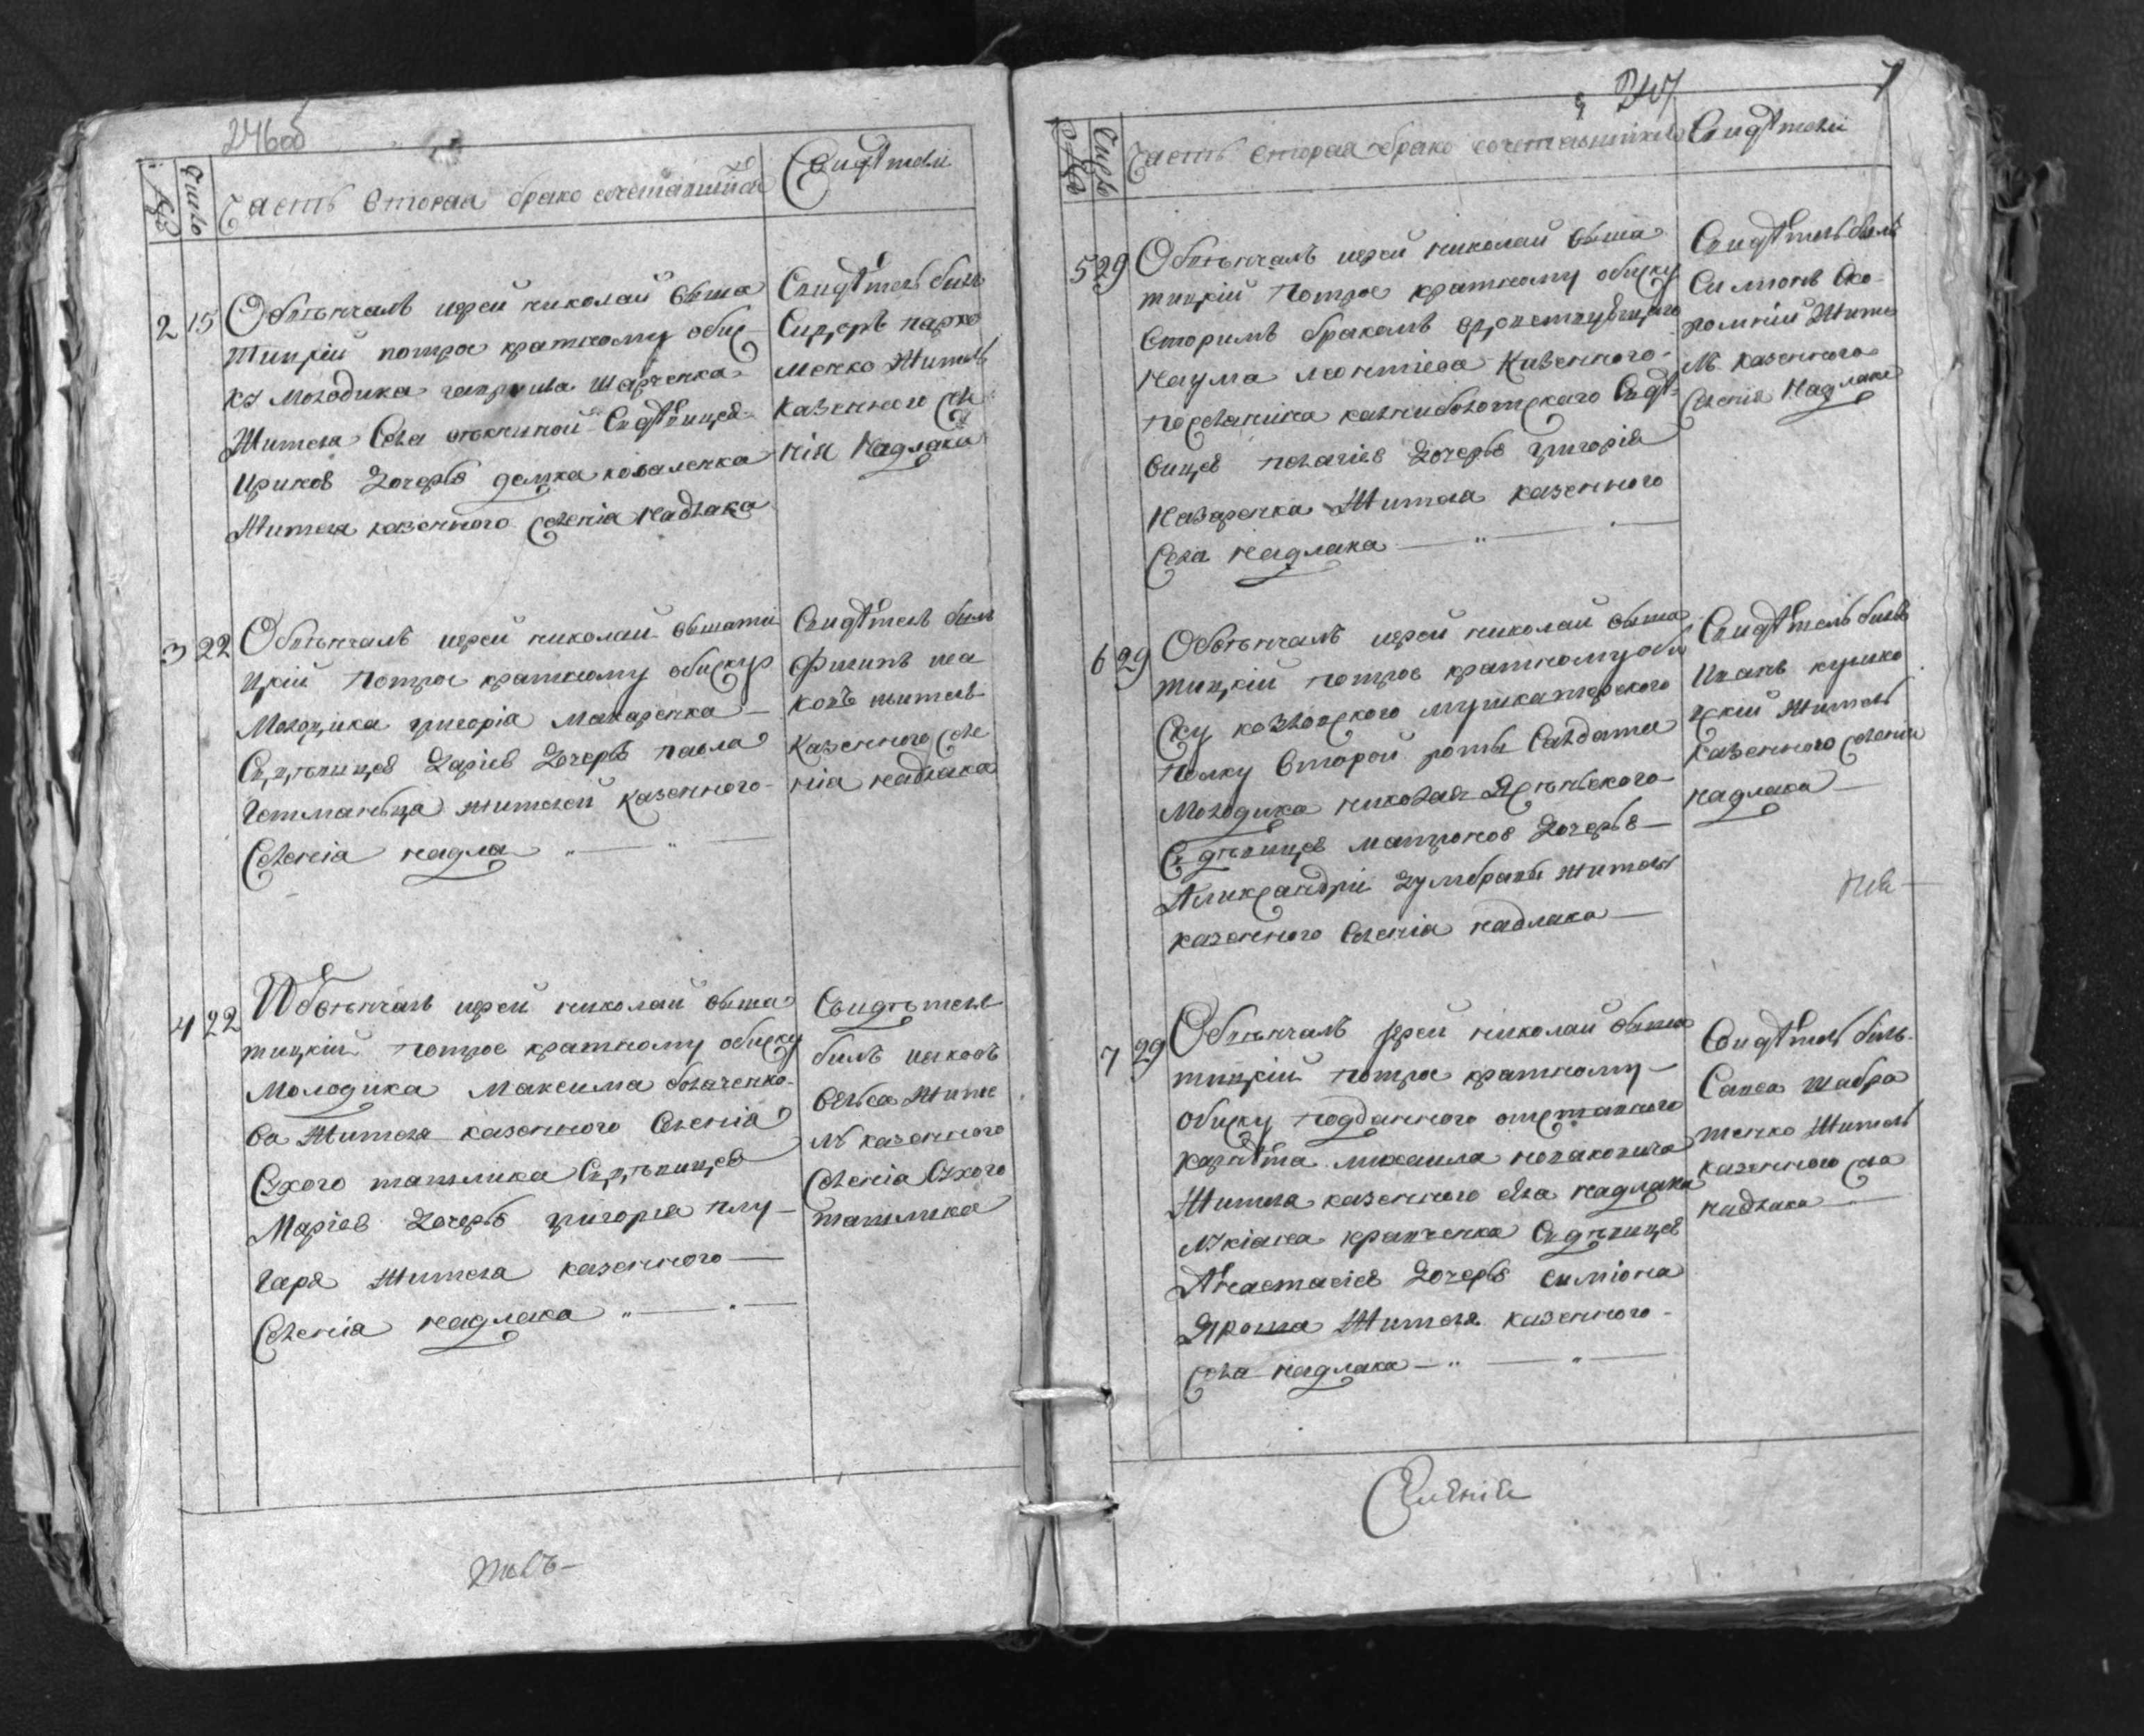 246об
Число
Часть вторая брако сочетавшихся
Свидѣтели
2 15
Обвѣнчалъ иерей николай выша
тицкий потрое кратному обис
ку молодика гаврила шарченка
Жителя Села Свѣдѣвицея
ириною дочерью демка коваленка
Жителя казенного селенія надлака
Свидѣтель билъ
Сидоръ пархо
менко Житель
казенного селе
нія надлака
3 22
Обвѣнчалъ иерей николай вышати
цкій потрое кратному обиску
Молодика григорія макаренка
Съдѣвицею Даріею Дочерью павла
Гетманьца жителей казенного
Селенія надла
Свидѣтель билъ
Филипъ ша
повъ житель
казенного селе
нія надлака
4 22
Обвѣнчалъ иерей николай выша
тицкій потрое кратному обиску
Молодика Максима богаченко
ва Жителя казенного Селенія
Сухого ташлика Съдѣвицею
Маріею Дочерью григорія плу
гаря Жителя казенного
Селенія надлака
Свидѣтель
билъ иаковъ
Жите
ль казенного
Селенія Сухого
ташлика
247
7
Число
Часть вторая брако сочетавшихся
Свидѣтели
5 29
Обвѣнчалъ иерей николай выша
тицкій потрое кратному обиску
вторимъ бракомъ
наума леонтіева казенного
поселянина каниболотскаго Съдѣ
вицею пелагіею дочерью григорія
назаренка Жителя казенного
Села надлака
Свидѣтель билъ
Симонъ Ско
ромний Жите
ль казенного
Селенія надлака
6 29
Обвѣнчалъ иерей николай выша
тицкій потрое кратному оби
ску козловского мушкатерского
полку второй роты Салдата
Молодика николая Яс
Съдѣвицею матроною Дочерью
Александри Думбравы жителя
казенного Селенія надлака
Свидѣтель билъ
Иванъ кулико
вский Житель
казенного селенія
надлака
7 29
Обвѣнчалъ иерей николай выша
тицкій потрое кратному
обиску подданного отставного
карнѣта михаила новаковича
Жителя казенного села надлака
лукіана кравченка Съдѣвицею
Анастасіею Дочерью симіона
Яроша Жителя казенного
села надлака
Свидѣтель билъ
Савва шабра
тенко Житель
казенного села
надлака